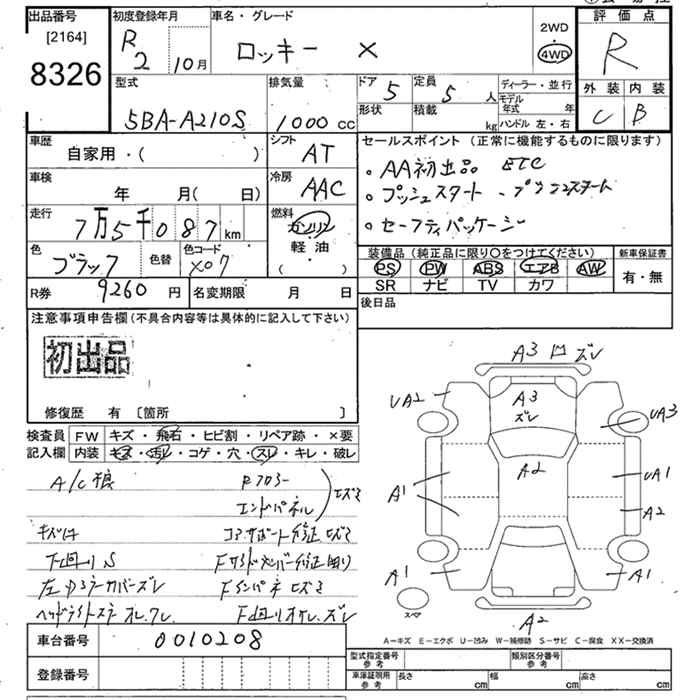 出品番号
[2164]
8326
初度登録年月
R
2 10月
車名・グレード
ロッキー X
2WD
4WD
評価点
R
外装 内装
C B
型式
5BA-A210S
排気量
1000 cc
ドア
5
定員
5 人
形状
積載
kg
ディーラー・並行
モデル
年式 年
ハンドル 左・右
車歴
自家用・( )
シフト
AT
車検
年 月( 日)
冷房
AAC
走行
7万5千087km
燃料
ガソリン
軽・油
( )
色
ブラック
色替
色コード
X07
R券 9260 円
名変期限 月 日
セールスポイント (正常に機能するものに限ります)
・AA初出品 ETC
・プッシュスタート
・セーフティパッケージ
装備品(純正品に限り〇をつけてください)
新車保証書
PS PW ABS エアB AW
SR ナビ TV カワ
有・無
後日品
注意事項申告欄(不具合内容等は具体的に記入して下さい)
初出品
修復歴 有〔箇所 〕
検査員
記入欄
FW キズ・飛石・ヒビ割・リペア跡・×要
内装 キズ・汚レ・コゲ・穴・スレ・キレ・破レ
エンドパネル
下回りS
車台番号 0010208
登録番号
A3 ズレ
UA2
A3
ズレ
UA3
A2
A1
UA1
A2
A1
A1
スペア
A2
A-キズ E-エクボ U-凹み W-補修跡 S-サビ C-腐食 XX-交換済
型式指定番号
参考
類別区分番号
参考
車庫証明用
参考
長さ cm
幅 cm
高さ cm